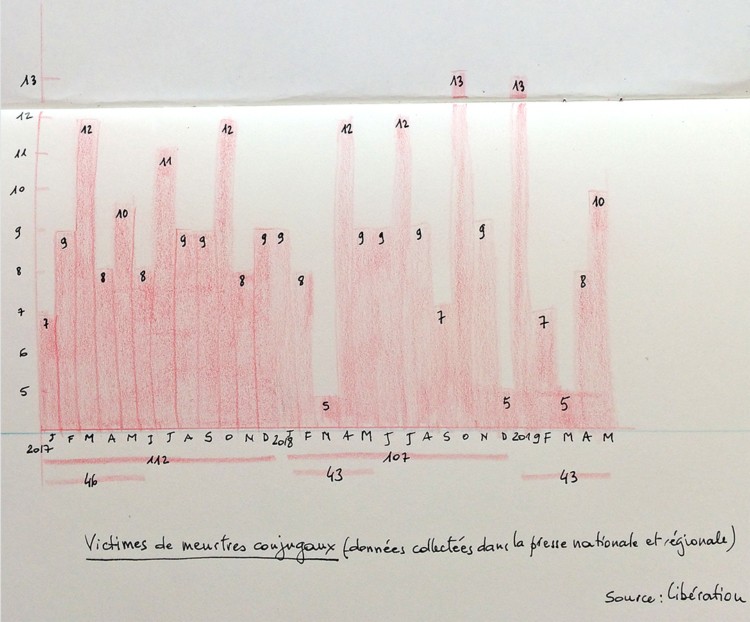 13
13 13
12
12 12 12 12
11
11
10
10 10
9
9 9 9 9 9 9 9 9 9
8
8 8 8 8 8
7
7 7 7
6
5
5 5 5
J F M A M J J A S O N D 2018 J F M A M J J A S O N D 2019 F M A M
2017
112 107
46 43 43
Victimes de meurtres conjugaux (données collectées dans la presse nationale et régionale)
Source : Libération